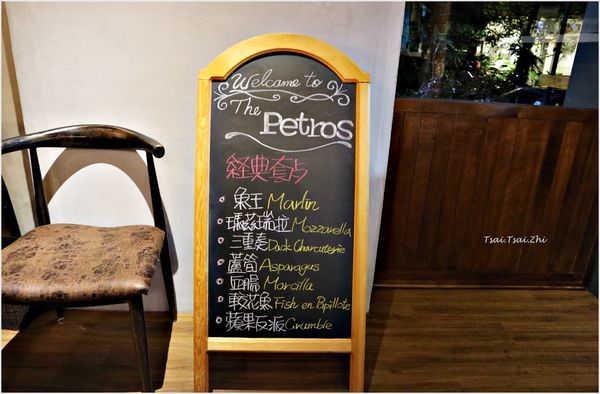 Welcome to
The
Petros
經典套占
魚王 Marlin
瑪茲瑞拉 Mozzarella
三重奏 Duck Charcuterie
蘆筍 Asparagus
血腸 Morcilla
鮫花魚 Fish en Papillote
蘋果反派 Crumble
Tsai.Tsai.Zhi